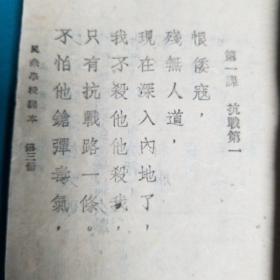 第一課 抗戰第一
恨倭寇，
殘無人道，
現在深入內地了，
我不殺他他殺我，
只有抗戰路一條。
不怕他鎗彈毒氣，
民衆學校課本 第三冊